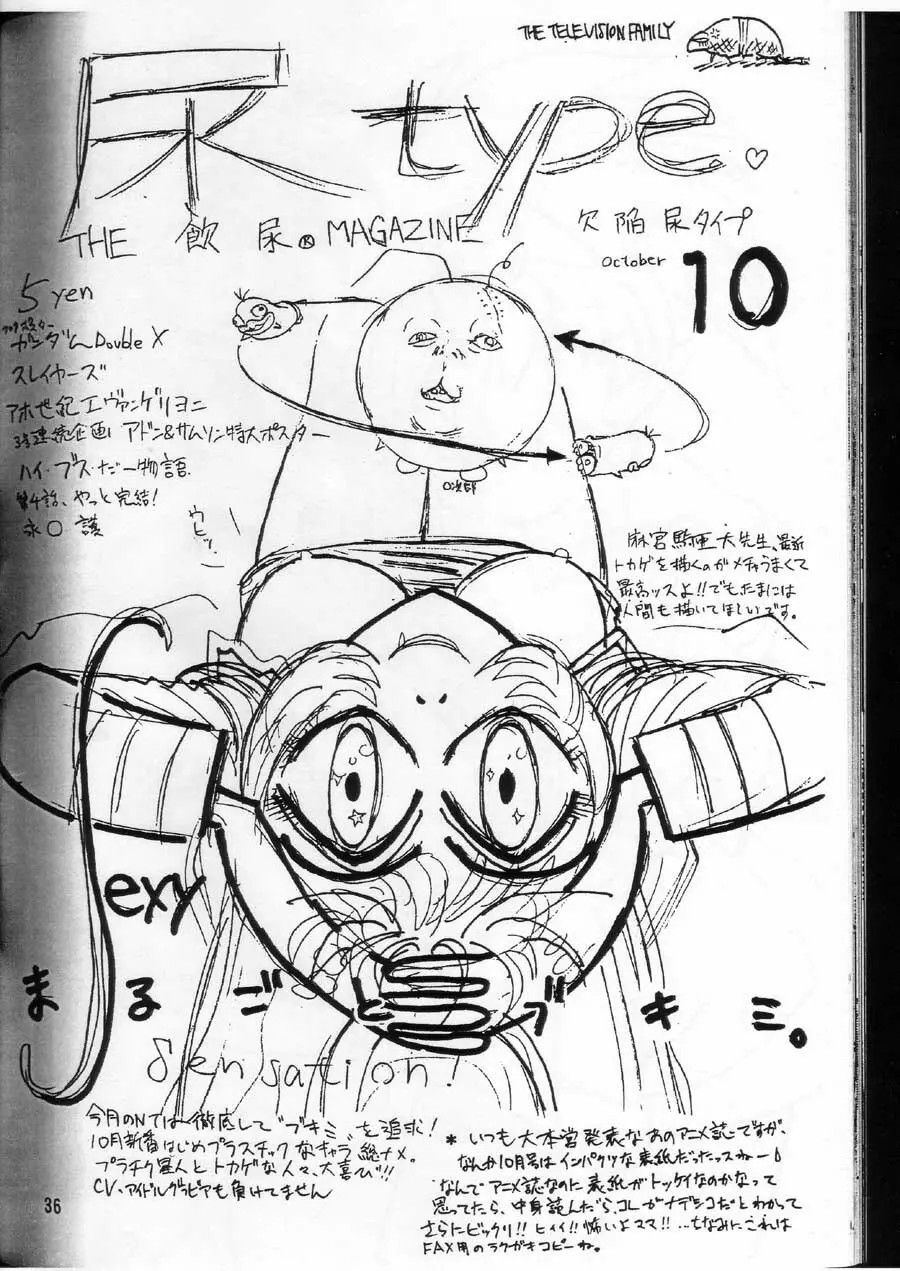 THE TELEVISION FAMILY
尿 type.♡
THE 飲尿® MAGAZINE
欠陥尿タイプ
October 10
5 yen
ガンダム Double X
スレイヤーズ
アホ世紀エヴァンゲリヨニ
3号連続企画 アドン&サムソン特大ポスター
ハイ・ブス・だー物語
第4話、やっと完結!
永○護
ウヒッ
麻宮騎亜大先生、最新
トカゲを描くのがメチャうまくて
最高ッスよ!!でもたまには
人間も描いてほしいです。
Sexy
まるごとブキミ。
Sensation!
今月のNTは徹底して"ブキミ"を追求!
10月新番はじめプラスチックなキャラ総ナメ。
プラチク星人とトカゲな人々、大喜び!!
CV、アイドルグラビアも負けてません
* いつも大本営発表なあのアニメ誌ですが、
なんか10月号はインパクツな表紙だったっスねー
なんでアニメ誌なのに表紙がトッケイなのかなって
思ってたら、中身読んだら、コレがナデシコだとわかって
さらにビックリ!!ヒィィ!!怖いよママ!!…ちなみにこれは
FAX用のラクガキコピーね。
36